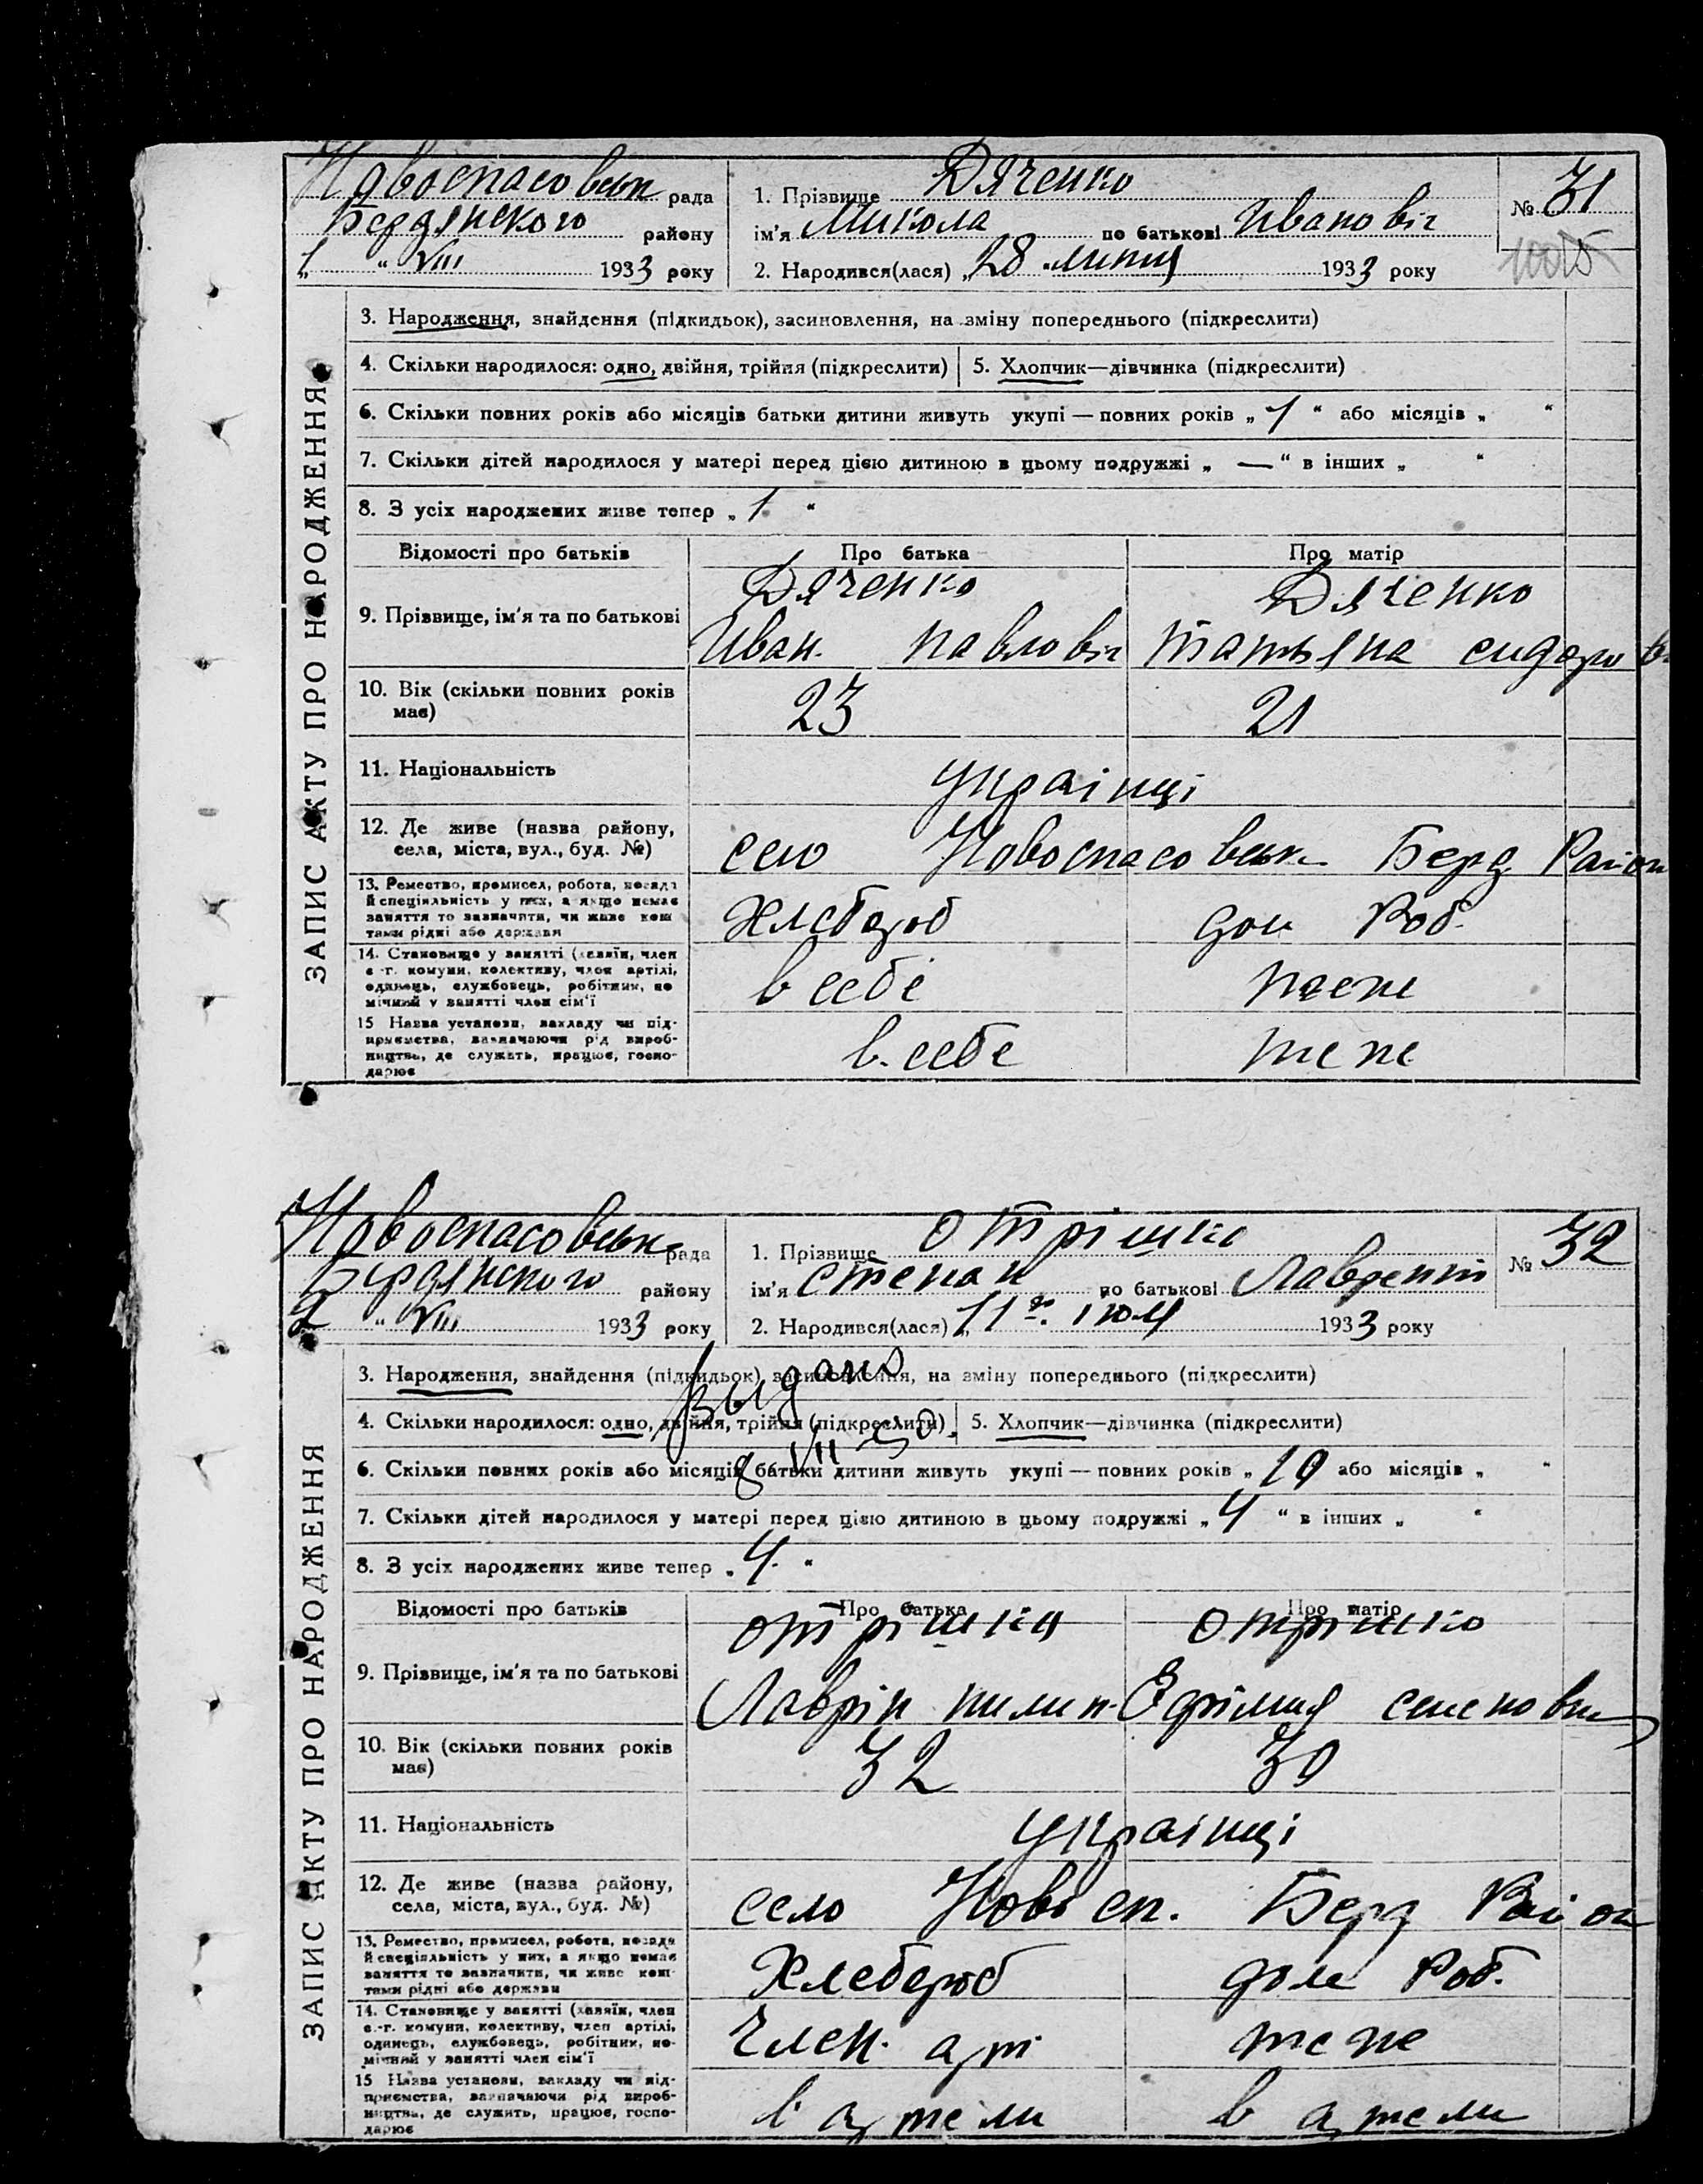 Новоспасовськ рада
1. Прізвище Дяченко
№ 31
Бердянского району
ім'я Микола по батькові Иванович
1 " VIII 1933 року
2. Народився(лася) „28 „липня 1933 року
3. Народження, знайдення (підкидьок), засиновлення, на зміну попереднього (підкреслити)
4. Скільки народилося: одно, двійня, трійня (підкреслити)
5. Хлопчик—дівчинка (підкреслити)
6. Скільки повних років або місяців батьки дитини живуть укупі — повних років „ 1 “ або місяців „ “
7. Скільки дітей народилося у матері перед цією дитиною в цьому подружжі „ — “ в інших „ “
8. З усіх народжених живе тепер „ 1 “
ЗАПИС АКТУ ПРО НАРОДЖЕННЯ
Відомості про батьків
Про батька
Про матір
9. Прізвище, ім'я та по батькові
Дяченко
Иван. Павловіч
Дяченко
татьяна сидоров
10. Вік (скільки повних років
має)
23
21
11. Національність
українці
12. Де живе (назва району,
села, міста, вул., буд. №)
село Новоспасовськ Берд Район
13. Ремество, промисел, робота, посада
й спеціяльність у них, а якщо немає
заняття то зазначити, чи живе кош
тами рідні або держави
Хлебороб
дом Роб.
14. Становище у занятті (хазяїн, член
с.-г. комуни, колективу, член артілі,
одинець, службовець, робітник, по
мічний у занятті член сім'ї
в себе
тоже
15 Назва установи, закладу чи під-
приємства, зазначаючи рід вироб-
ництва, де служить, працює, госпо-
дарює
в себе
тоже
Новоспасовськ рада
1. Прізвище Отрішко
№ 32
Бердянского району
ім'я степан по батькові Лаврент
2 " VIII 1933 року
2. Народився(лася) „11го. июля 1933 року
3. Народження, знайдення (підкидьок), засиновлення, на зміну попереднього (підкреслити)
выдано
4. Скільки народилося: одно, двійня, трійня (підкреслити)
5. Хлопчик—дівчинка (підкреслити)
8 VII 50.
6. Скільки повних років або місяців батьки дитини живуть укупі — повних років „ 10 або місяців „ “
7. Скільки дітей народилося у матері перед цією дитиною в цьому подружжі „ 4 “ в інших „ “
8. З усіх народжених живе тепер „ 4. “
ЗАПИС АКТУ ПРО НАРОДЖЕННЯ
Відомості про батьків
Про батька
Про матір
9. Прізвище, ім'я та по батькові
отрішко
Лаврін пилип.
отрішко
Ефімия семеновна
10. Вік (скільки повних років
має)
32
30
11. Національність
українці
12. Де живе (назва району,
села, міста, вул., буд. №)
село Новосп. Берд Район
13. Ремество, промисел, робота, посада
й спеціяльність у них, а якщо немає
заняття то зазначити, чи живе кош
тами рідні або держави
Хлебороб
дом Роб.
14. Становище у занятті (хазяїн, член
с.-г. комуни, колективу, член артілі,
одинець, службовець, робітник, по-
мічний у занятті член сім'ї
Член. арт
тоже
15 Назва установи, закладу чи під-
приємства, зазначаючи рід вироб-
ництва, де служить, працює, госпо-
дарює
в артели
в артели